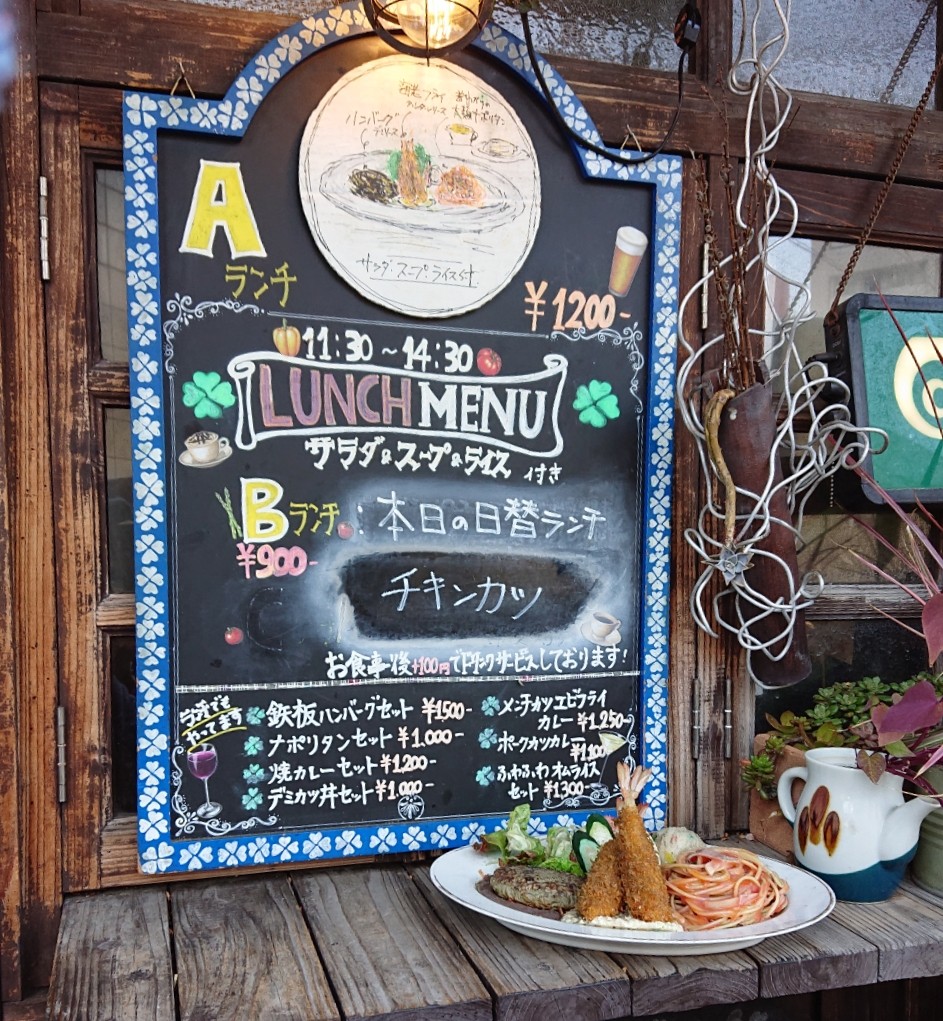 A
ランチ
ハンバーグ
フライ
タルタルソース
ナポリタン
サラダ・スープ・ライス付
¥1200-
11:30~14:30
LUNCH MENU
サラダ&スープ&ライス 付き
Bランチ:本日の日替ランチ
¥900-
チキンカツ
お食事後+100円でドリンクサービスしております!
やってます
鉄板ハンバーグセット ¥1500-
ナポリタンセット ¥1.000-
焼カレーセット ¥1,200-
デミカツ丼セット ¥1.000-
メンチカツエビフライ
カレー ¥1,250-
ポークカツカレー
¥1,100
ふわふわオムライス
セット ¥1300-